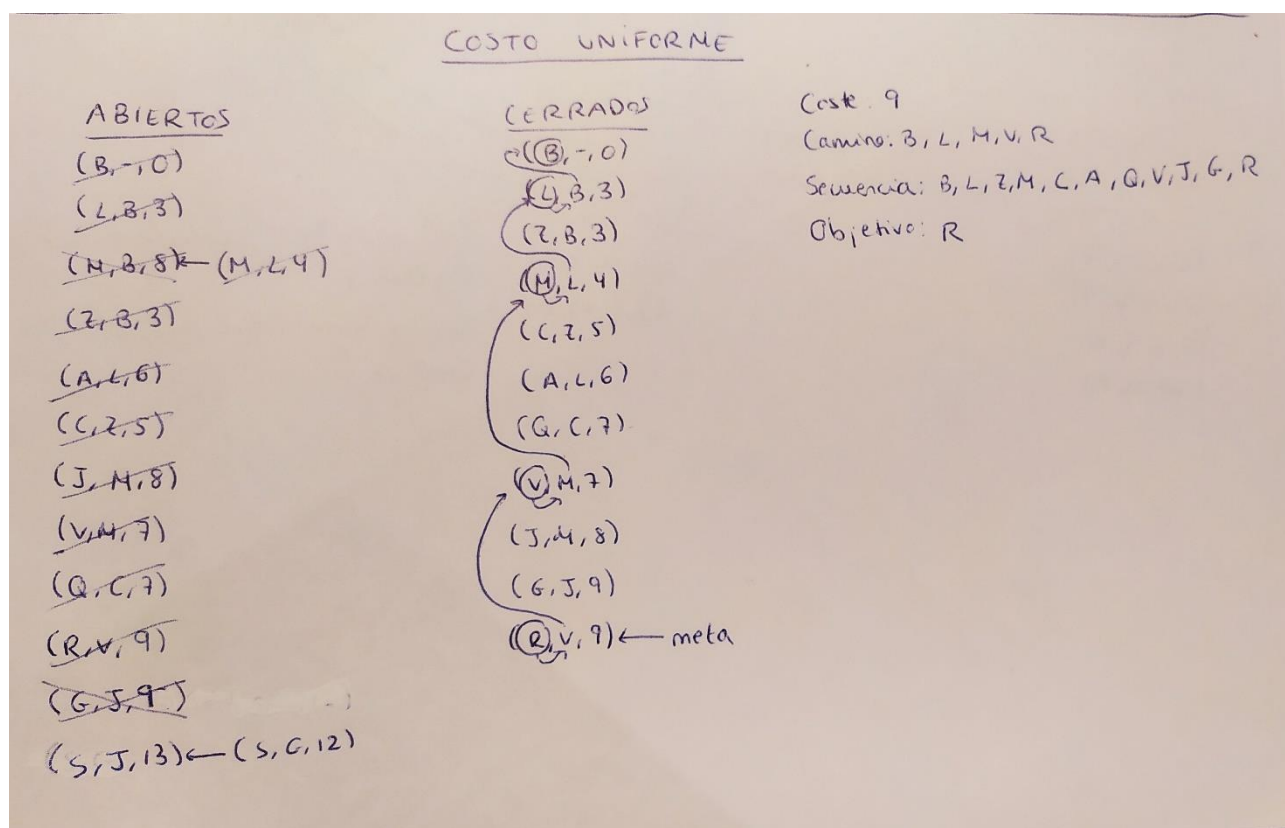 COSTO UNIFORME
ABIERTOS
(B,-,0)
(L,B,3)
(M,B,8) ← (M,L,4)
(Z,B,3)
(A,L,6)
(C,Z,5)
(J,M,8)
(V,M,7)
(Q,C,7)
(R,V,9)
(G,J,9)
(S,J,13) ← (S,G,12)
CERRADOS
(B,-,0)
(L,B,3)
(Z,B,3)
(M,L,4)
(C,Z,5)
(A,L,6)
(Q,C,7)
(V,M,7)
(J,M,8)
(G,J,9)
(R,V,9) ← meta
Coste: 9
Camino: B, L, M, V, R
Secuencia: B, L, Z, M, C, A, Q, V, J, G, R
Objetivo: R